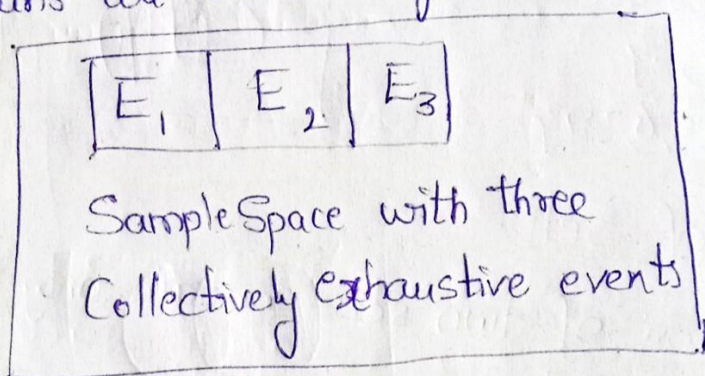 E₁ E₂ E₃
Sample Space with three
Collectively exhaustive events